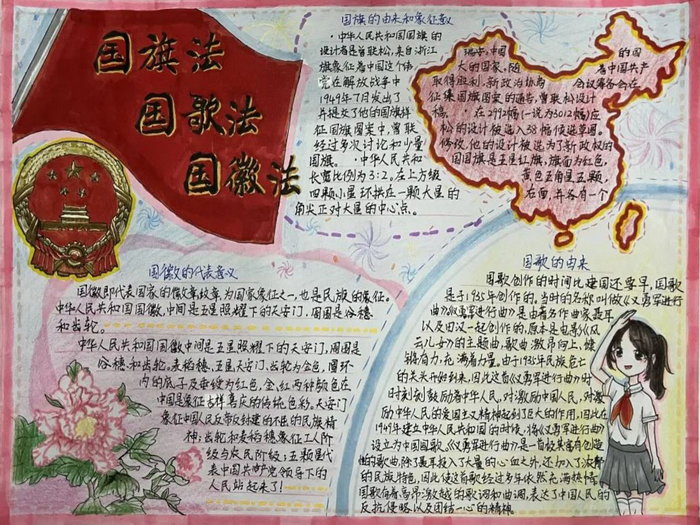 国旗法
国歌法
国徽法
国旗的由来和象征意义
·中华人民共和国国旗的
设计者是曾联松,来自浙江
瑞安,国
的国
旗象征着中国这个伟
大的国家,随
着中国共产
党在解放战争中
取得胜利,新政治协商
会议筹备会在
1949年7月发出了
征集国旗图案的通告,曾联松设计
并提交了他的国旗样
稿。·在2992幅(一说为3012幅)应
征国旗图案中,曾联
松的设计被选入38幅候选草图。
经过多次讨论和少量
修改,他的设计被选为了新政权的
国旗。·中华人民共和
国国旗是五星红旗,旗面为红色,
长宽比例为3:2。左上方缀
黄色五角星五颗,
四颗小星环拱在一颗大星的
右面,并各有一个
角尖正对大星的中心点。
国徽的代表意义
国徽即代表国家的徽章纹章,为国家象征之一,也是民族的象征。
中华人民共和国国徽,中间是五星照耀下的天安门,周围是谷穗
和齿轮。
中华人民共和国国徽中间是五星照耀下的天安门,周围是
谷穗和齿轮。麦稻穗、五星、天安门、齿轮为金色,圆环
内的底子及垂绶为红色,金、红两种颜色在
中国是象征吉祥喜庆的传统色彩。天安门
象征中国人民反帝反封建的不屈的民族精
神;齿轮和麦稻穗象征工人阶
级与农民阶级;五颗星代
表中国共产党领导下的
人民站起来了!
国歌的由来
国歌创作的时间比建国还要早,国歌
是于1935年创作的,当时的名称叫做《义勇军进行
曲》《义勇军进行曲》是由著名作曲家聂耳
以及田汉一起创作的,原本是电影《风
云儿女》的主题曲,歌曲激昂向上,铿
锵有力,充满着力量。由于1935年民族危亡
的关头开始到来,因此这首《义勇军进行曲》时
时刻刻鼓励着中华人民,对激励中国人民,对激
励中华人民的爱国主义精神起到了巨大的作用,因此在
1949年建立中华人民共和国的时候,将《义勇军进行曲》
设立为中国国歌。《义勇军进行曲》是一首极具富有创造
他的歌曲,除了聂耳投入了大量的心血之外,还加入了浓郁
的民族特色,因此使这首歌经过多年依然充满热情
国歌有着高昂激越的歌词和曲调,表达了中国人民的
反抗侵略以及团结一心的精神